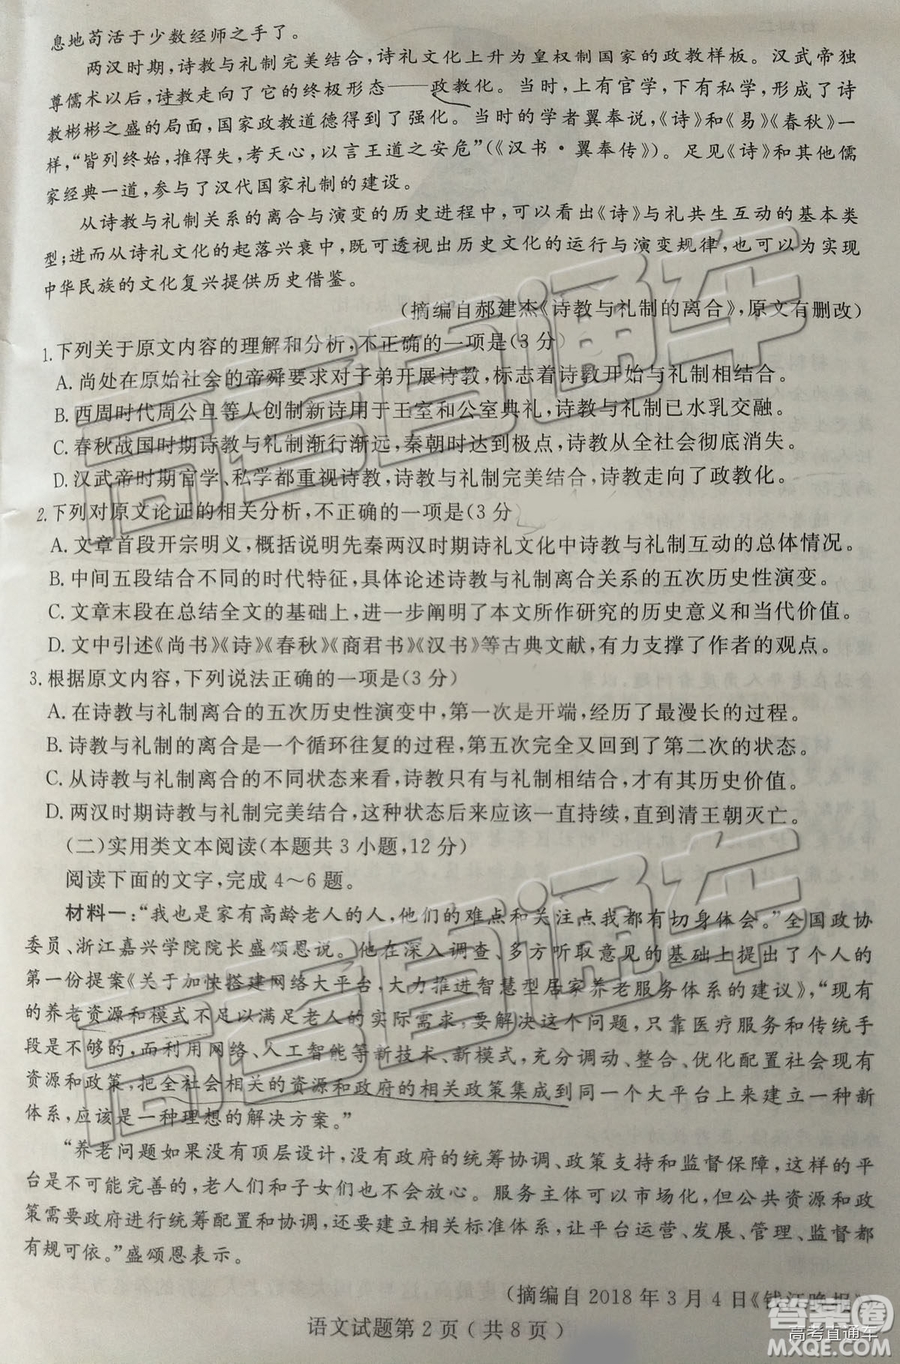 息地苟活于少数经师之手了。
两汉时期,诗教与礼制完美结合,诗礼文化上升为皇权制国家的政教样板。汉武帝独
尊儒术以后,诗教走向了它的终极形态——政教化。当时,上有官学,下有私学,形成了诗
教彬彬之盛的局面,国家政教道德得到了强化。当时的学者翼奉说,《诗》和《易》《春秋》一
样,“皆列终始,推得失,考天心,以言王道之安危”(《汉书·翼奉传》)。足见《诗》和其他儒
家经典一道,参与了汉代国家礼制的建设。
从诗教与礼制关系的离合与演变的历史进程中,可以看出《诗》与礼共生互动的基本类
型;进而从诗礼文化的起落兴衰中,既可透视出历史文化的运行与演变规律,也可以为实现
中华民族的文化复兴提供历史借鉴。
(摘编自郝建杰《诗教与礼制的离合》,原文有删改)
1.下列关于原文内容的理解和分析,不正确的一项是(3分)
A.尚处在原始社会的帝舜要求对子弟开展诗教,标志着诗教开始与礼制相结合。
B.西周时代周公旦等人创制新诗用于王室和公室典礼,《诗》教与礼制已水乳交融。
C.春秋战国时期诗教与礼制渐行渐远,秦朝时达到极点,诗教从全社会彻底消失。
D.汉武帝时期官学、私学都重视诗教,诗教与礼制完美结合,诗教走向了政教化。
2.下列对原文论证的相关分析,不正确的一项是(3分)
A.文章首段开宗明义,概括说明先秦两汉时期诗礼文化中诗教与礼制互动的总体情况。
B.中间五段结合不同的时代特征,具体论述诗教与礼制离合关系的五次历史性演变。
C.文章末段在总结全文的基础上,进一步阐明了本文所作研究的历史意义和当代价值。
D.文中引述《尚书》《诗》《春秋》《商君书》《汉书》等古典文献,有力支撑了作者的观点。
3.根据原文内容,下列说法正确的一项是(3分)
A.在诗教与礼制离合的五次历史性演变中,第一次是开端,经历了最漫长的过程。
B.诗教与礼制的离合是一个循环往复的过程,第五次完全又回到了第二次的状态。
C.从诗教与礼制离合的不同状态来看,诗教只有与礼制相结合,才有其历史价值。
D.两汉时期诗教与礼制完美结合,这种状态后来应该一直持续,直到清王朝灭亡。
(二)实用类文本阅读(本题共3小题,12分)
阅读下面的文字,完成4～6题。
材料一:“我也是家有高龄老人的人,他们的难点和关注点我都有切身体会。”全国政协
委员、浙江嘉兴学院院长盛颂恩说。他在深入调查、多方听取意见的基础上提出了个人的
第一份提案《关于加快搭建网络大平台,大力推进智慧型居家养老服务体系的建议》,“现有
的养老资源和模式不足以满足老人的实际需求,要解决这个问题,只靠医疗服务和传统手
段是不够的,而利用网络、人工智能等新技术、新模式,充分调动、整合、优化配置社会现有
资源和政策,把全社会相关的资源和政府的相关政策集成到同一个大平台上来建立一种新
体系,应该是一种理想的解决方案。”
“养老问题如果没有顶层设计,没有政府的统筹协调、政策支持和监督保障,这样的平
台是不可能完善的,老人们和子女们也不会放心。服务主体可以市场化,但公共资源和政
策需要政府进行统筹配置和协调,还要建立相关标准体系,让平台运营、发展、管理、监督都
有规可依。”盛颂恩表示。
(摘编自2018年3月4日《钱江晚报》)
语文试题第2页(共8页)
高考直通车
答案圈
高考直通车
MXQE.COM